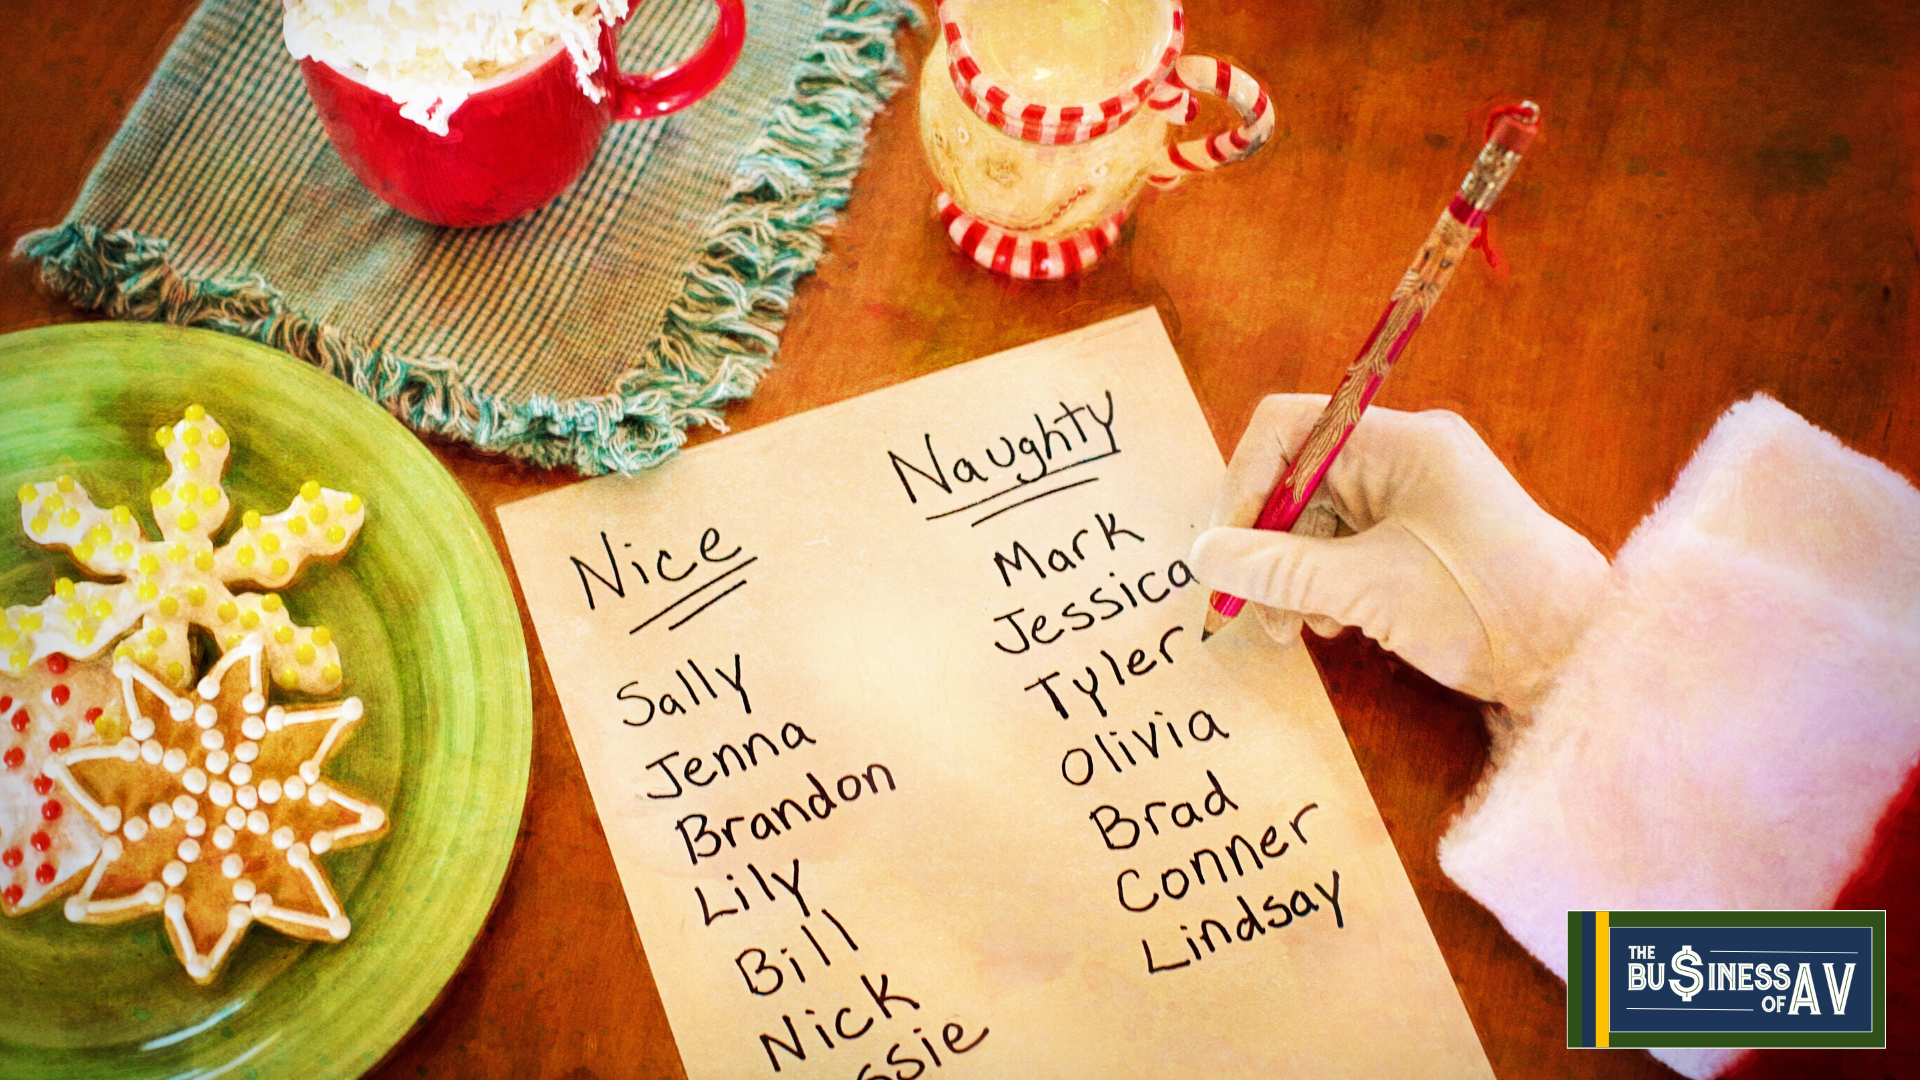 Nice
Sally
Jenna
Brandon
Lily
Bill
Nick
Naughty
Mark
Jessica
Tyler
Olivia
Brad
Conner
Lindsay
THE
BU$INESS
OF AV